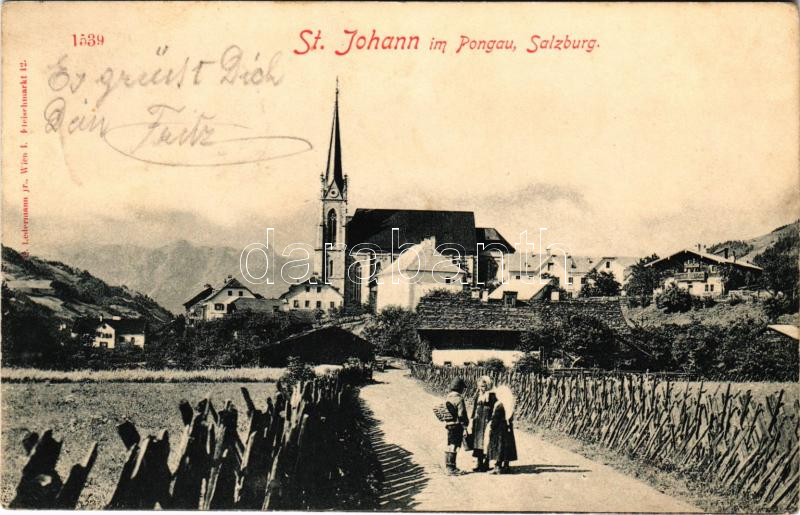 1539
St. Johann im Pongau, Salzburg.
Es grüsst Dich
Dein Fritz
Ledermann jr., Wien I. Fleischmarkt 12.
darabanth